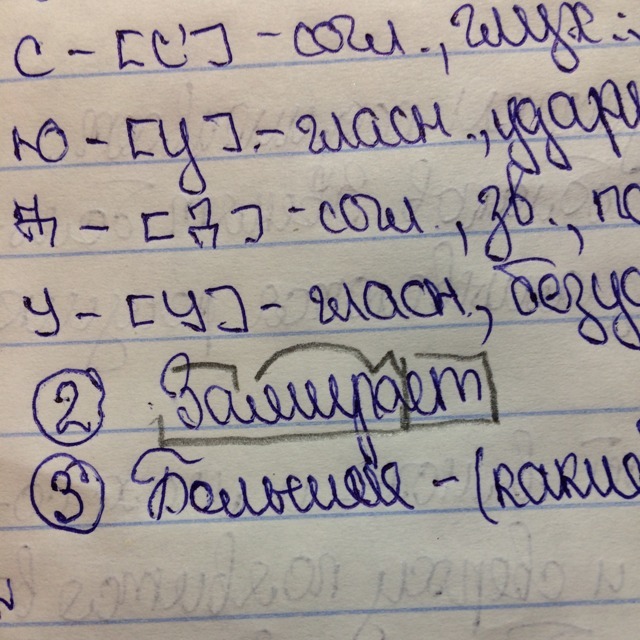 с - [с'] - согл., глух.,
ю - [у] - гласн., удари
д - [д] - согл., зв., по
у - [у] - гласн., безуд
② Замирает
③ Большие - (каки